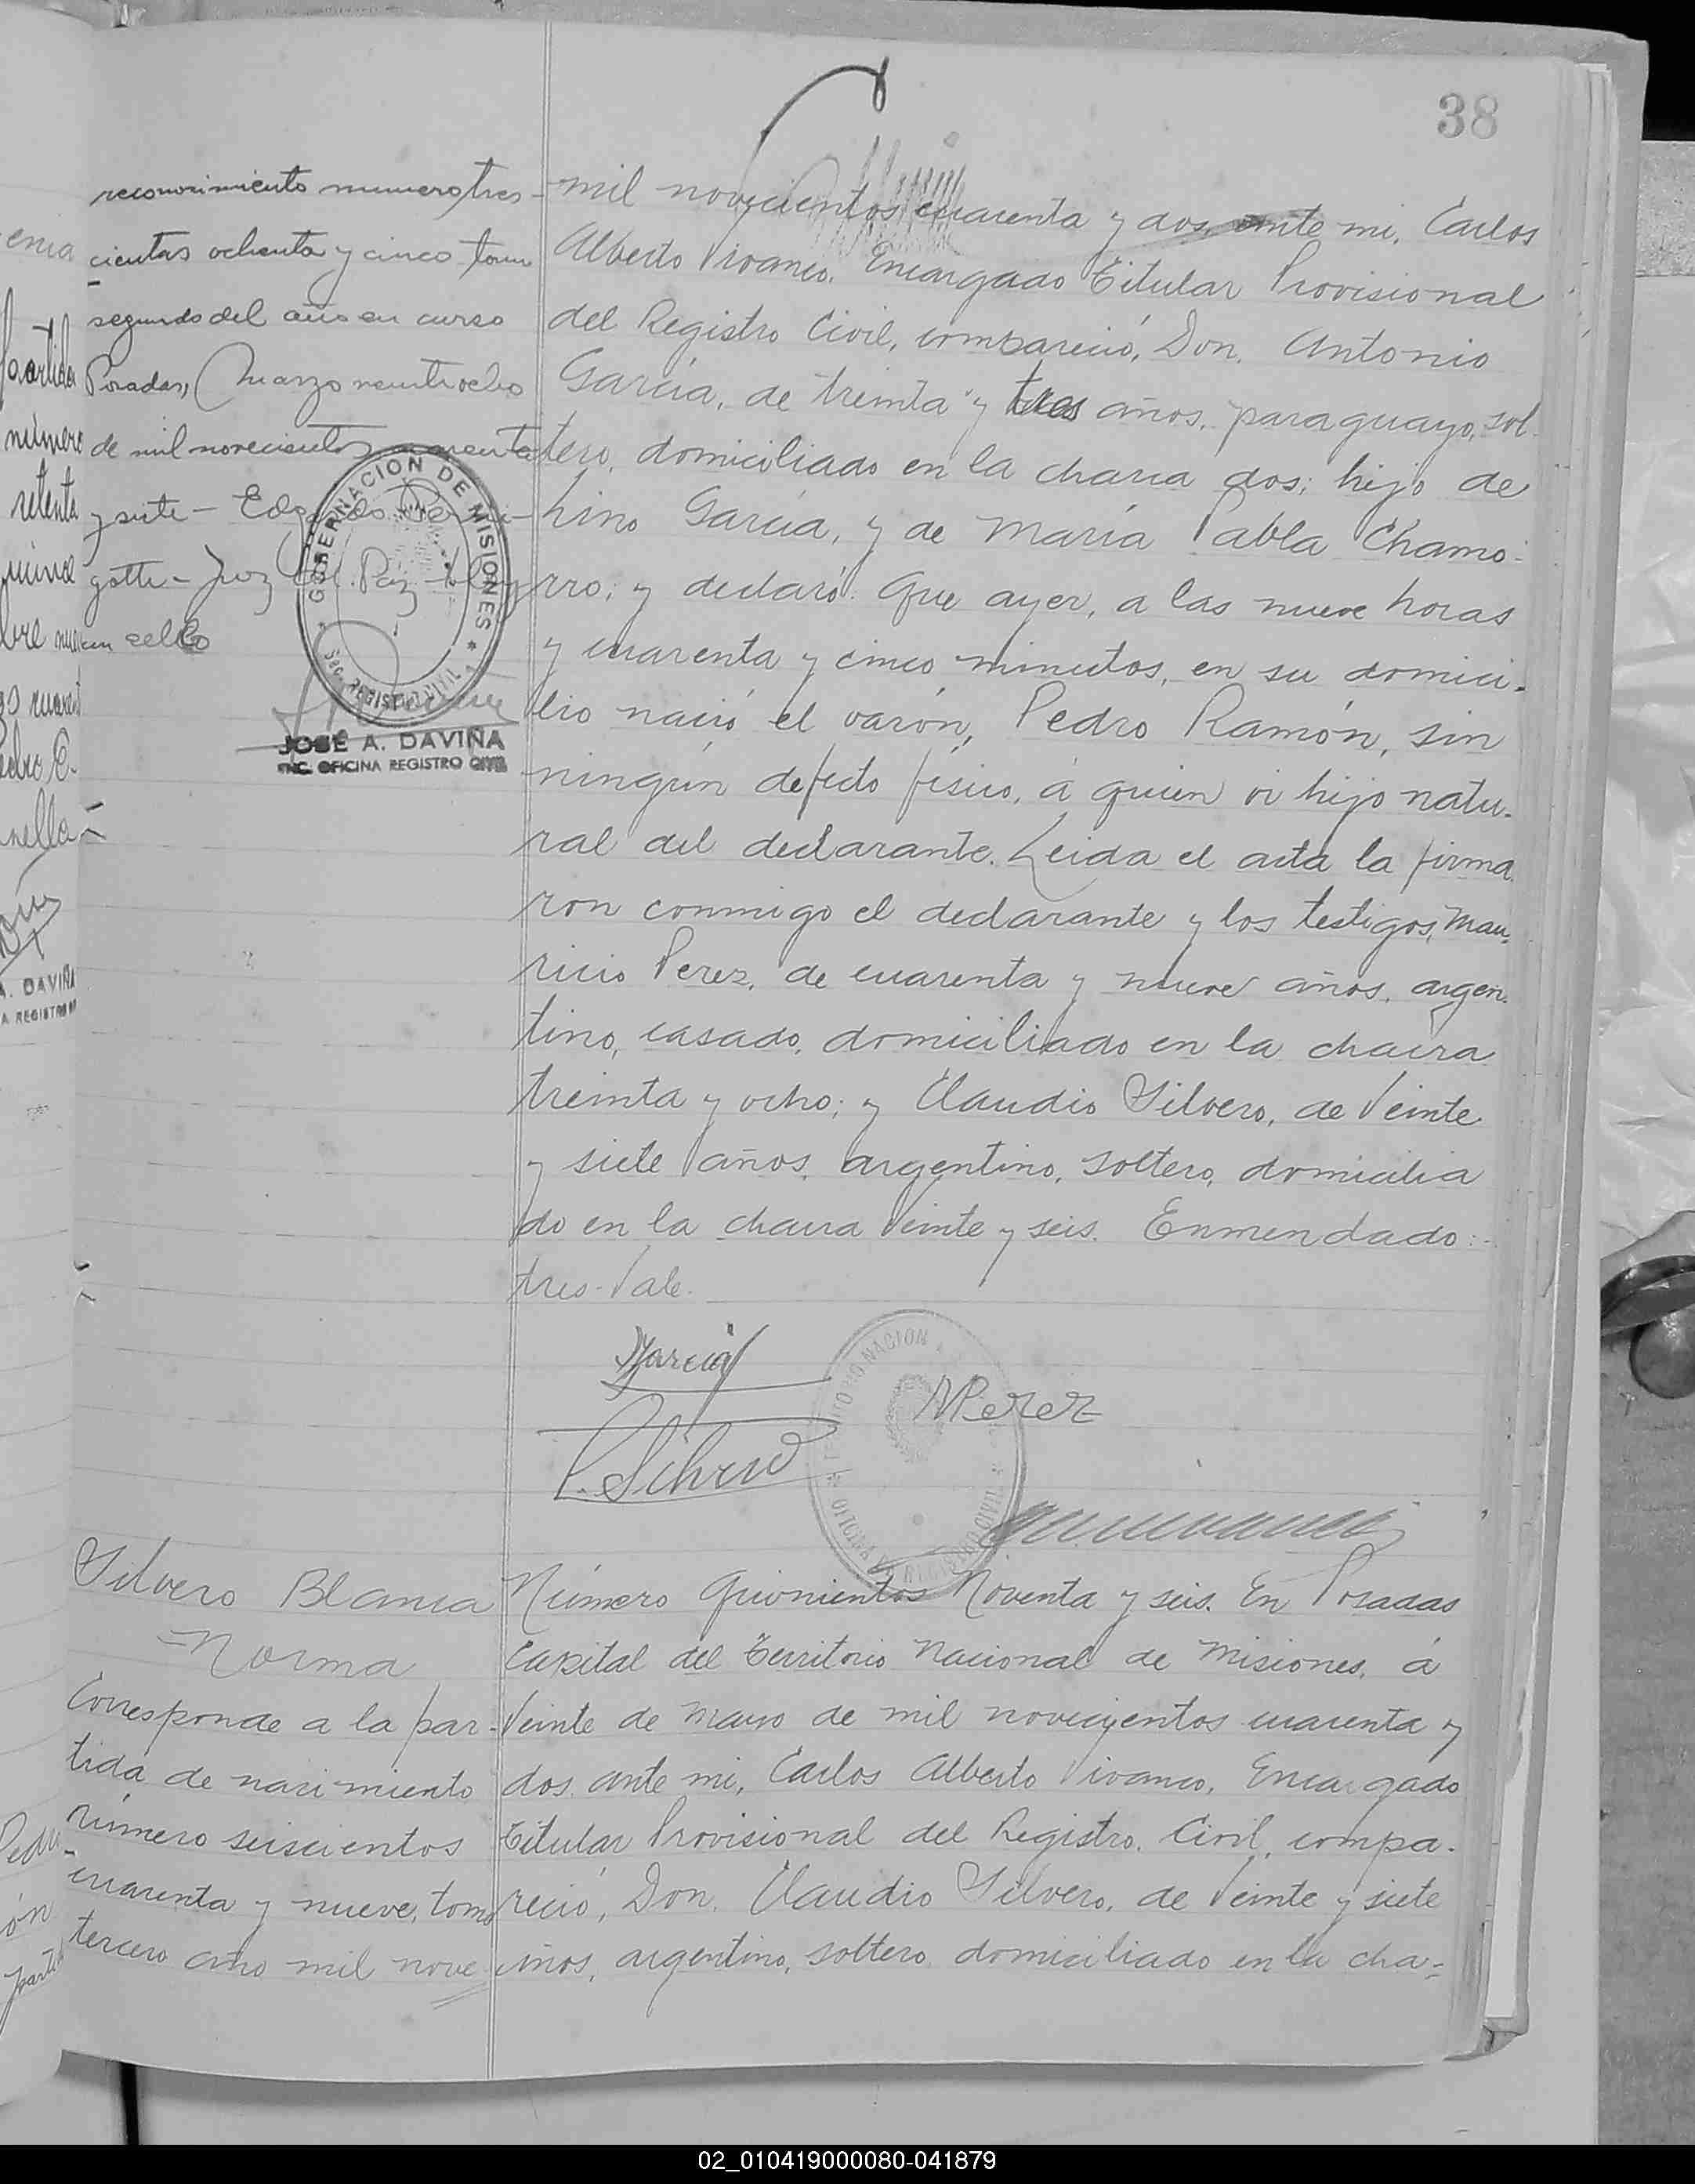 38
reconocimiento numero tres-
cientos ochenta y cinco tomo
segundo del año en curso
Posadas, Marzo veintiocho
de mil novecientos cuarenta
y siete -
gotti - Juez de Paz
un sello
GOBERNACION DE MISIONES
SEC. REGISTRO CIVIL
JOSE A. DAVIÑA
ENC. OFICINA REGISTRO CIVIL
mil novecientos cuarenta y dos, ante mi, Carlos
Alberto Vivanco, Encargado Titular Provisional
del Registro Civil, compareció, Don, Antonio
García, de treinta y tres años, paraguayo, sol-
tero, domiciliado en la chacra dos; hijo de
hino García, y de María Pabla Chamo-
rro; y declaró: Que ayer, a las nueve horas
y cuarenta y cinco minutos, en su domici-
lio nació el varón, Pedro Ramón, sin
ningún defecto físico, á quien vi hijo natu-
ral del declarante. Leida el acta la firma
ron conmigo el declarante y los testigos, Mau-
ricio Perez, de cuarenta y nueve años, argen-
tino, casado, domiciliado en la chacra
treinta y ocho; y Claudio Silvero, de Veinte
y siete años, argentino, soltero, domicilia
do en la chacra Veinte y seis. Enmendado:-
tres-Vale.
García
MPerez
C. Silvero
Silvero Blanca
Norma
Corresponde a la par-
tida de nacimiento
número seiscientos
cuarenta y nueve, tomo
tercero año mil nove
Número Quinientos Noventa y seis. En Posadas
Capital del Territorio Nacional de Misiones, á
Veinte de Mayo de mil novecientos cuarenta y
dos, ante mi, Carlos Alberto Vivanco, Encargado
Titular Provisional del Registro Civil, compa-
reció, Don, Claudio Silvero, de Veinte y siete
años, argentino, soltero domiciliado en la cha-
02_010419000080-041879